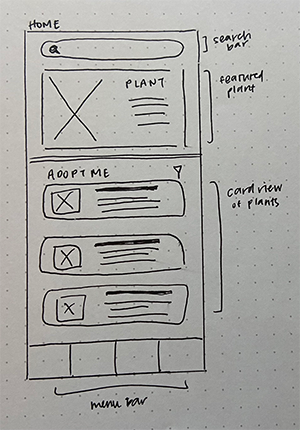 HOME
search
bar
PLANT
featured
plant
ADOPT ME
card view
of plants
menu bar